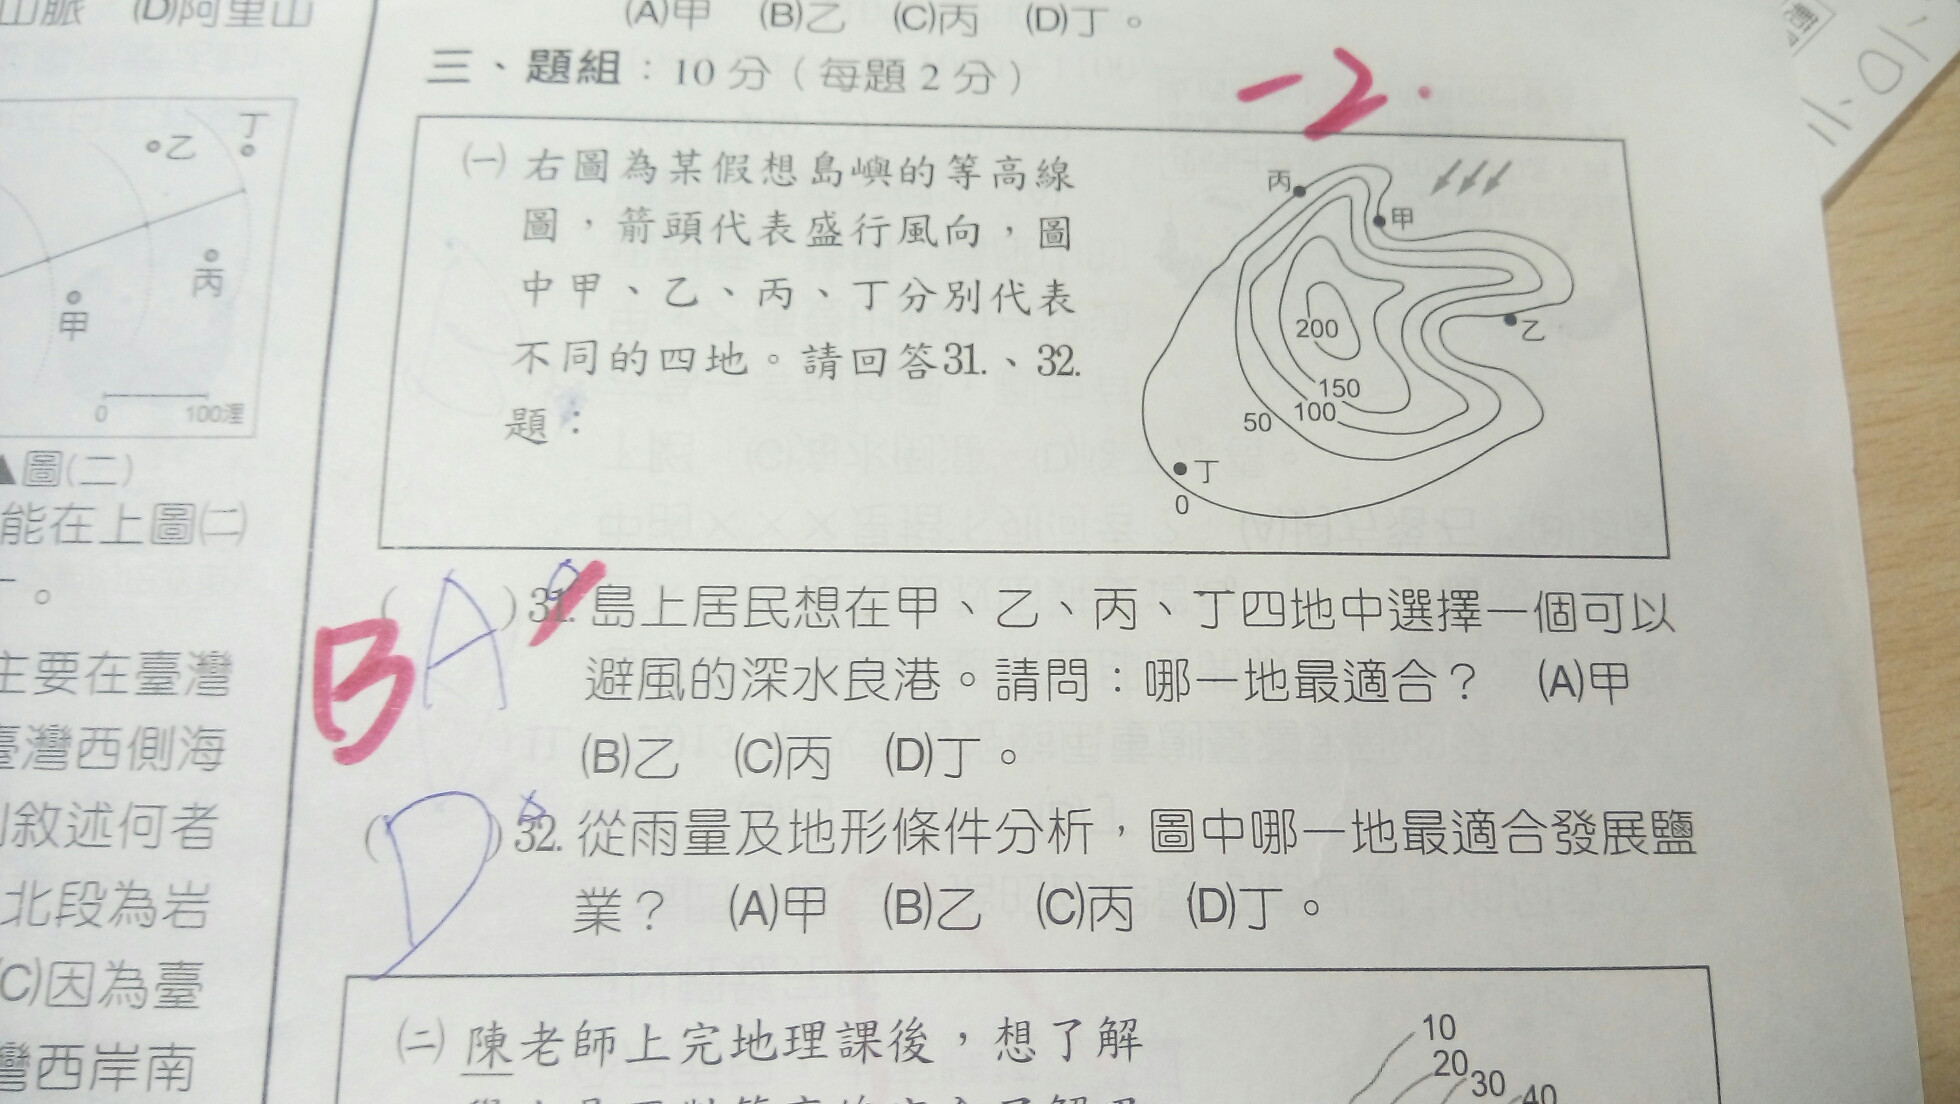 山脈 (D)阿里山
乙
丁
丙
甲
0 100浬
▲圖(二)
能在上圖㈡
。
主要在臺灣
臺灣西側海
敘述何者
北段為岩
(C)因為臺
灣西岸南
(A)甲 (B)乙 (C)丙 (D)丁。
三、題組：10分（每題2分）
-2.
㈠ 右圖為某假想島嶼的等高線
圖，箭頭代表盛行風向，圖
中甲、乙、丙、丁分別代表
不同的四地。請回答31.、32.
題：
丙
甲
乙
200
150
100
50
丁
0
B
( A ) 31. 島上居民想在甲、乙、丙、丁四地中選擇一個可以
避風的深水良港。請問：哪一地最適合？ (A)甲
(B)乙 (C)丙 (D)丁。
( D ) 32. 從雨量及地形條件分析，圖中哪一地最適合發展鹽
業？ (A)甲 (B)乙 (C)丙 (D)丁。
㈡ 陳老師上完地理課後，想了解
10
20
30
40